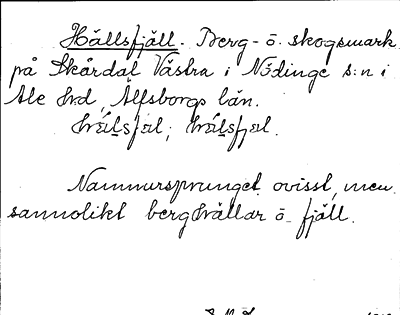 Hällsfjäll. Berg- o. skogsmark
på Skårdal Västra i Nödinge s:n i
Ale hrd, Älfsborgs län.
Namnursprunget ovisst, men
sannolikt berghällar o. fjäll.